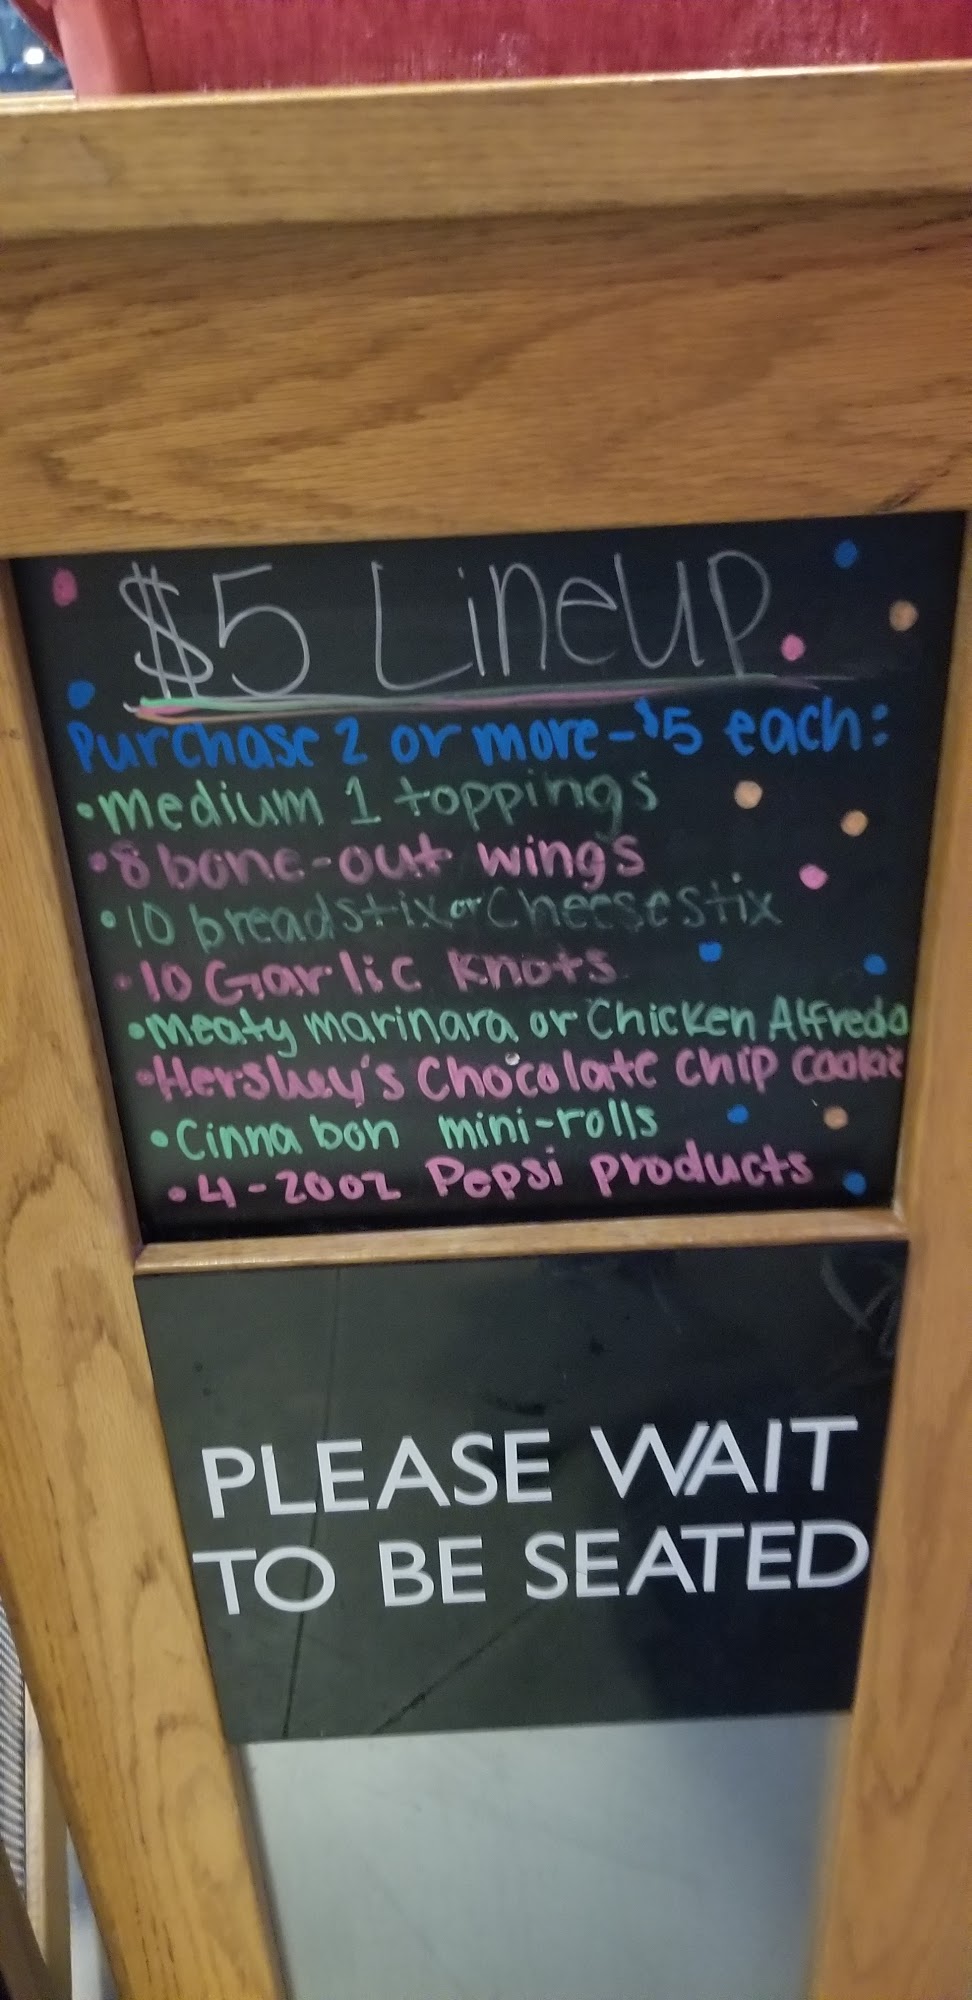 $5 Lineup
Purchase 2 or more-$5 each:
•medium 1 toppings
•8 bone-out wings
•10 breadstix or Cheesestix
•10 Garlic Knots
•Meaty marinara or Chicken Alfredo
•Hershey's Chocolate Chip Cookie
•Cinnabon mini-rolls
•4-20oz Pepsi products
PLEASE WAIT
TO BE SEATED